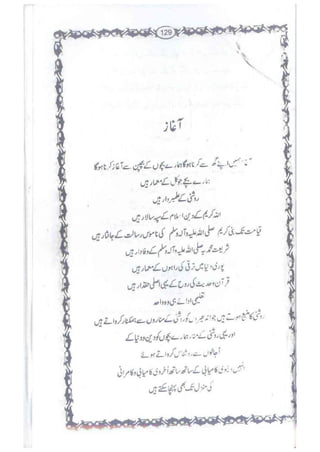 129
آغاز
ہمیں اپنے گھر سے کرنا ہوگا ہمارے بچوں کے بچپن سے آغاز کرنا ہوگا
ہمارے بچے جو کل کے معمار ہیں
روشنی کے علمبردار ہیں
اللہ کریم کے دین اسلام کے سپہ سالار ہیں
قیامت تک نبی کریم صلی اللہ علیہ وآلہ وسلم کی ناموس رسالت کے جانثار ہیں
شریعت محمدیہ صلی اللہ علیہ وآلہ وسلم کے وفادار ہیں
پوری دنیا میں ترقی کی راہوں کے معمار ہیں
قرآن و حدیث کی روح کے یہی اصلی حقدار ہیں
تعلیمی ادارے ہی وہ واحد
روشنی کا منبع ہوتے ہیں جو اندھیروں کو روشنی کے مناروں سے ہمکنار کرواتے ہیں
اور یہی روشنی کے منار ہمارے بچوں کو دین و دنیا کے
اجالوں سے روشناس کرواتے ہوئے
انہیں دنیوی کامیابی کے ساتھ ساتھ اُخروی کامیابی و کامرانی
کی منزل تک بھی پہنچا سکتے ہیں